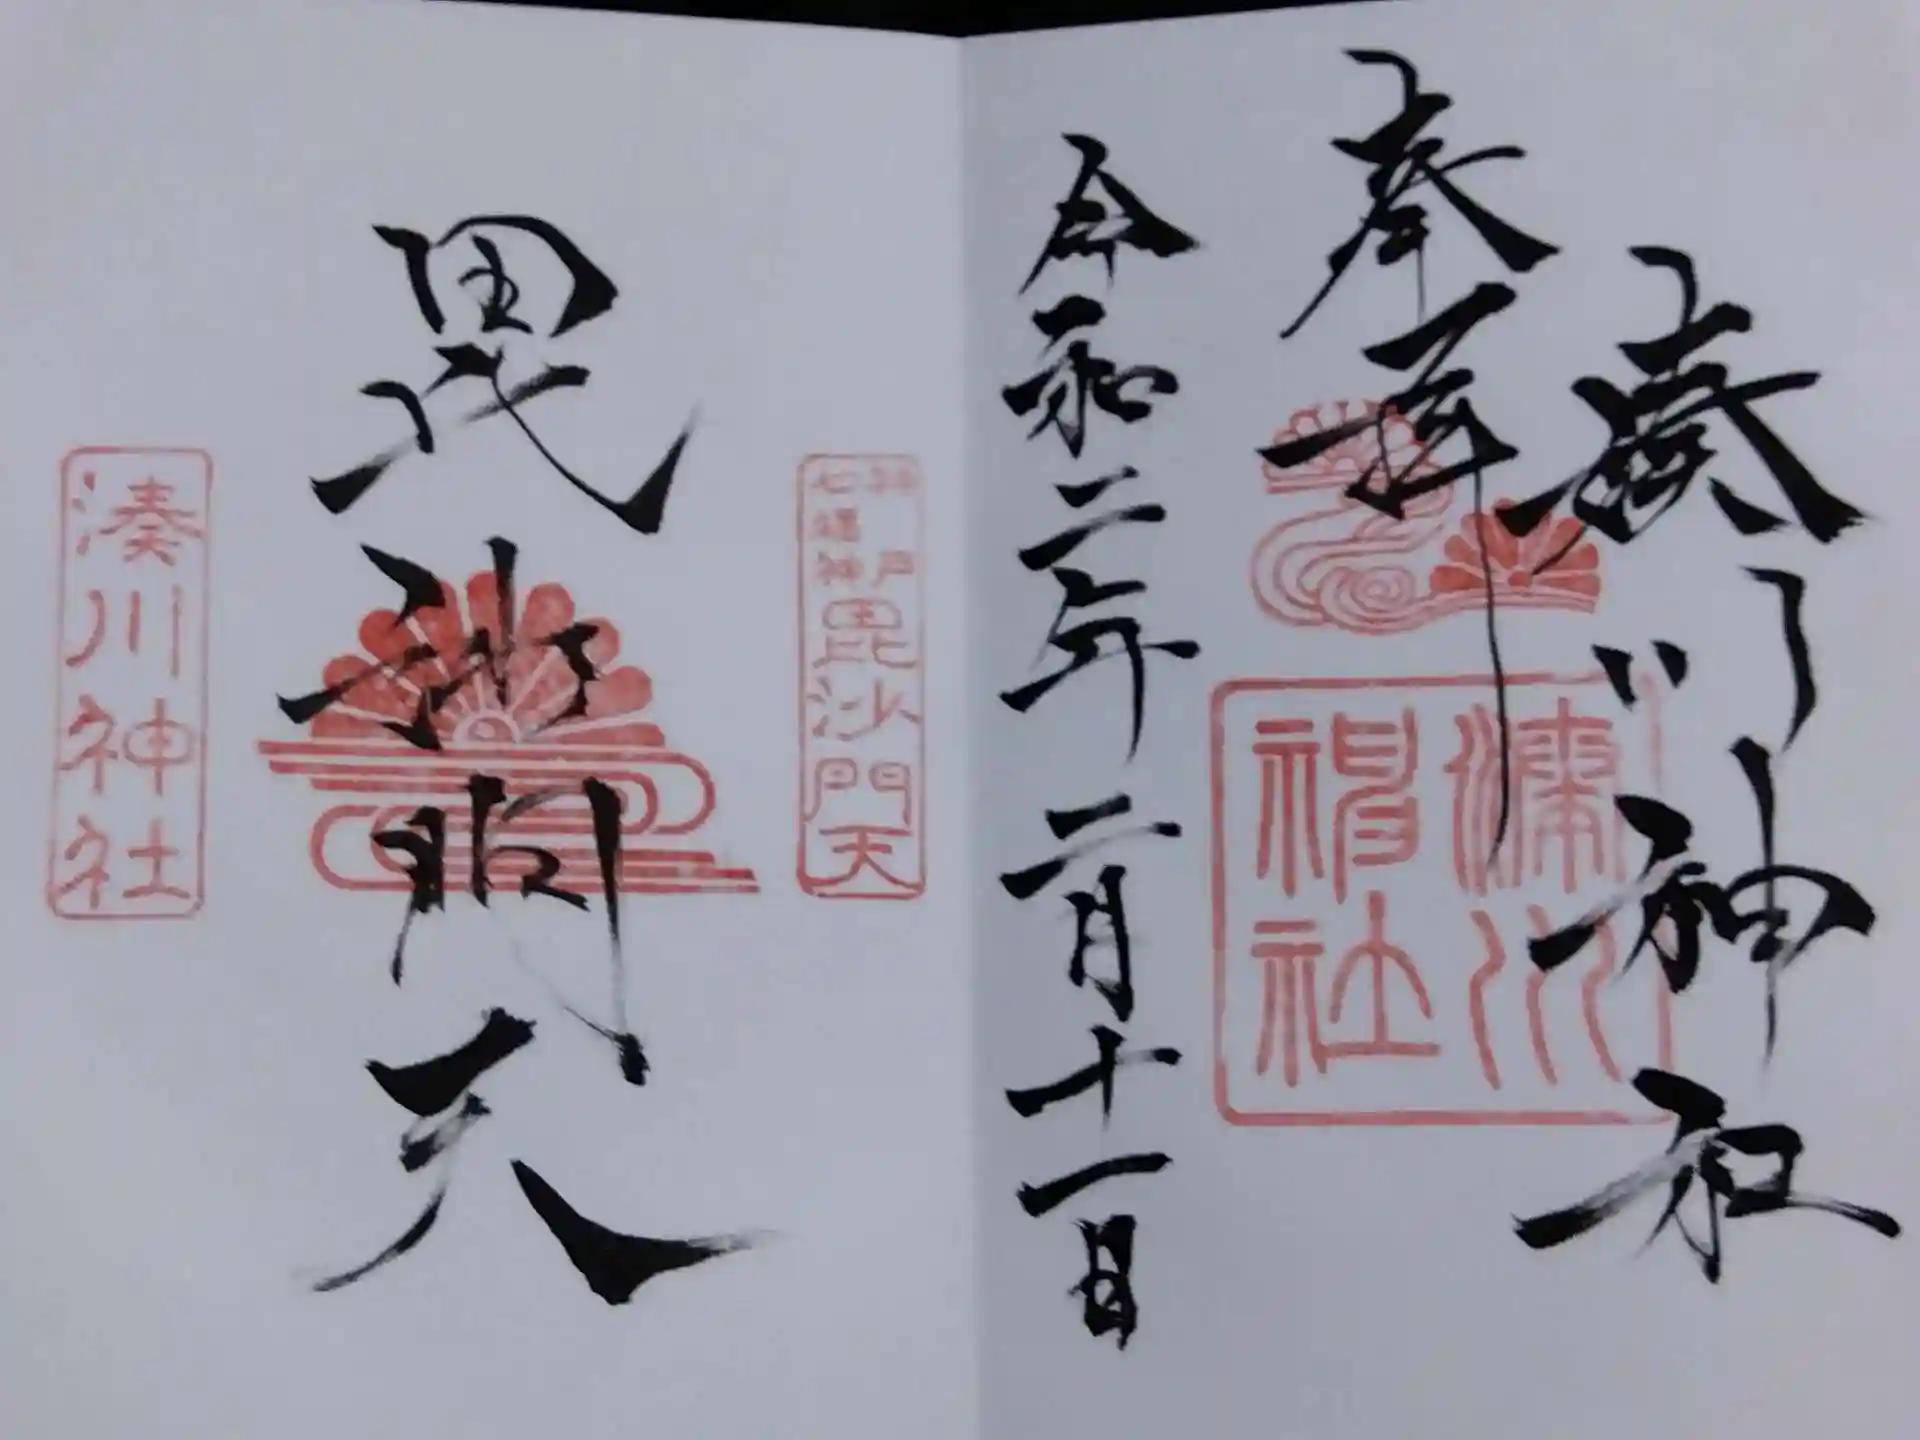 湊川神社
奉拝
湊川神社
令和二年二月十一日
神戸
七福神
毘沙門天
毘沙門天
湊川神社